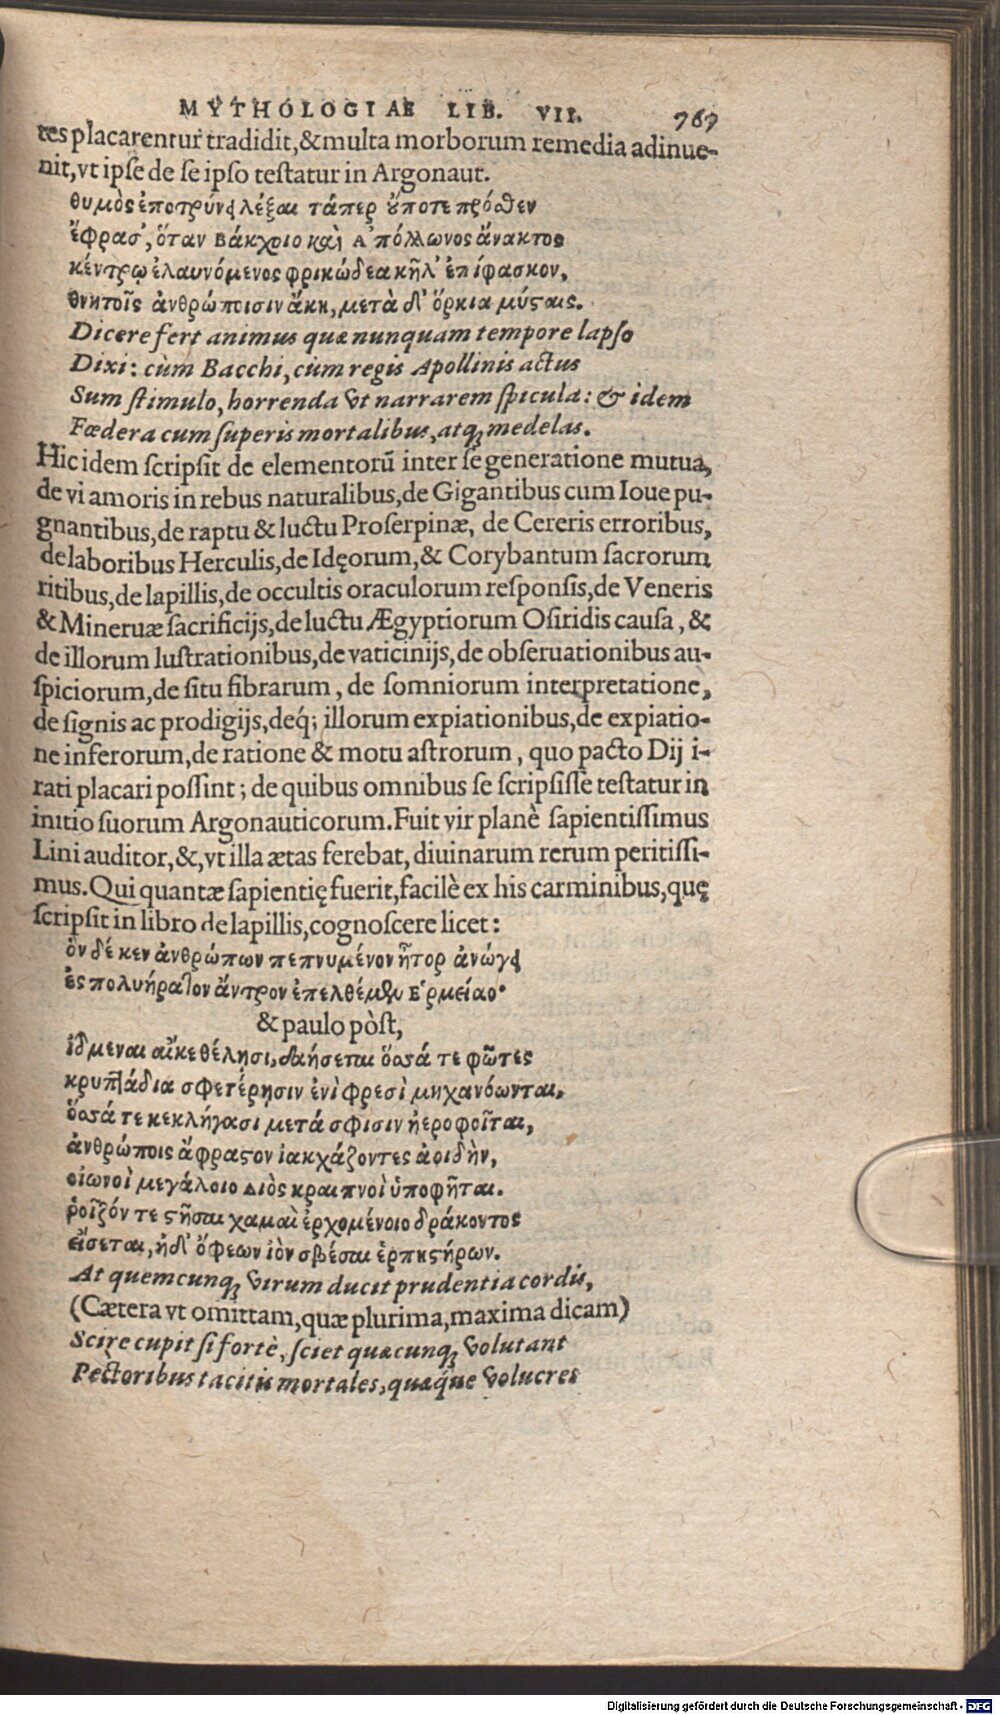 MYTHOLOGIAE LIB. VII. 767
tes placarentur tradidit,&multa morborum remedia adinue-
nit,vt ipse de se ipso testatur in Argonaut.
θυμὸς ἐποτρύνει λέξαι τάπερ οὔποτε πρόσθεν
ἔφρασ', ὅταν Βάκχοιο καὶ Ἀπόλλωνος ἄνακτος
κέντρῳ ἐλαυνόμενος φρικώδεα κῆλ' ἐπίφασκον,
θνητοῖς ἀνθρώποισιν ἄκη, μετὰ δ' ὅρκια μύσταις.
Dicere fert animus quæ nunquam tempore lapso
Dixi: cùm Bacchi, cùm regis Apollinis actus
Sum stimulo, horrenda vt narrarem spicula: & idem
Fœdera cum superis mortalibus, atq; medelas.
Hic idem scripsit de elementorū inter se generatione mutua,
de vi amoris in rebus naturalibus, de Gigantibus cum Ioue pu-
gnantibus, de raptu & luctu Proserpinæ, de Cereris erroribus,
de laboribus Herculis, de Idęorum, & Corybantum sacrorum
ritibus, de lapillis, de occultis oraculorum responsis, de Veneris
& Mineruæ sacrificijs, de luctu Ægyptiorum Osiridis causa, &
de illorum lustrationibus, de vaticinijs, de obseruationibus au-
spiciorum, de situ fibrarum, de somniorum interpretatione,
de signis ac prodigijs, deq́; illorum expiationibus, de expiatio-
ne inferorum, de ratione & motu astrorum, quo pacto Dij i-
rati placari possint; de quibus omnibus se scripsisse testatur in
initio suorum Argonauticorum. Fuit vir planè sapientissimus
Lini auditor, &, vt illa ætas ferebat, diuinarum rerum peritissi-
mus. Qui quantæ sapientię fuerit, facilè ex his carminibus, quę
scripsit in libro de lapillis, cognoscere licet:
ὃν δέ κεν ἀνθρώπων πεπνυμένον ἦτορ ἀνώγει
ἐς πολυήρατον ἄντρον ἐπελθέμεν Ἑρμείαο·
& paulo pòst,
ἴδμεναι αἴκε θέλησι, δαήσεται ὅσσά τε φῶτες
κρυπτάδια σφετέρησιν ἐνὶ φρεσὶ μηχανόωνται,
ὅσσά τε κεκλήγασι μετά σφισιν ἠεροφοῖται,
ἀνθρώποις ἄφραστον ἰακχάζοντες ἀοιδὴν,
οἰωνοὶ μεγάλοιο Διὸς κραιπνοὶ ὑποφῆται.
ῥοῖζόν τε στῆσαι χαμαὶ ἐρχομένοιο δράκοντος
εἴσεται, ἠδ' ὄφεων ἰὸν σβέσαι ἑρπηστήρων.
At quemcunq; virum ducit prudentia cordis,
(Cætera vt omittam, quæ plurima, maxima dicam)
Scire cupit si fortè, sciet quæcunq; volutant
Pectoribus tacitis mortales, quæq́ue volucres
Digitalisierung gefördert durch die Deutsche Forschungsgemeinschaft - DFG